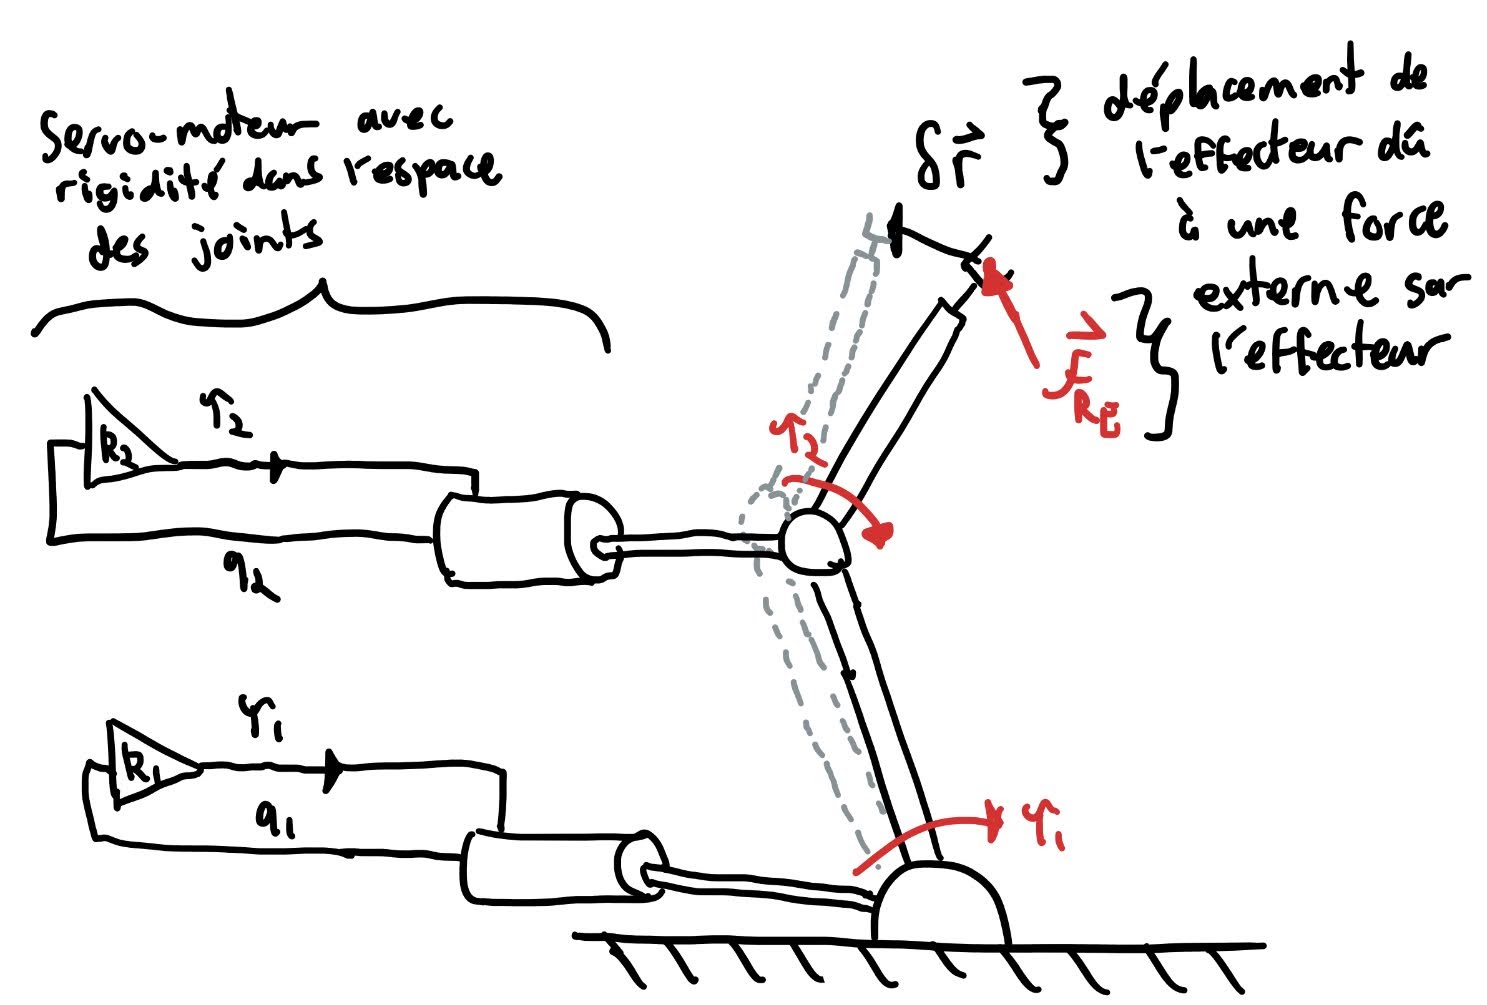 Servo-moteur avec
rigidité dans l'espace
des joints
δr⃗
} déplacement de
l'effecteur dû
à une force
externe sur
l'effecteur
k₂
τ₂
q₂
τ₂
k₁
τ₁
q₁
τ₁